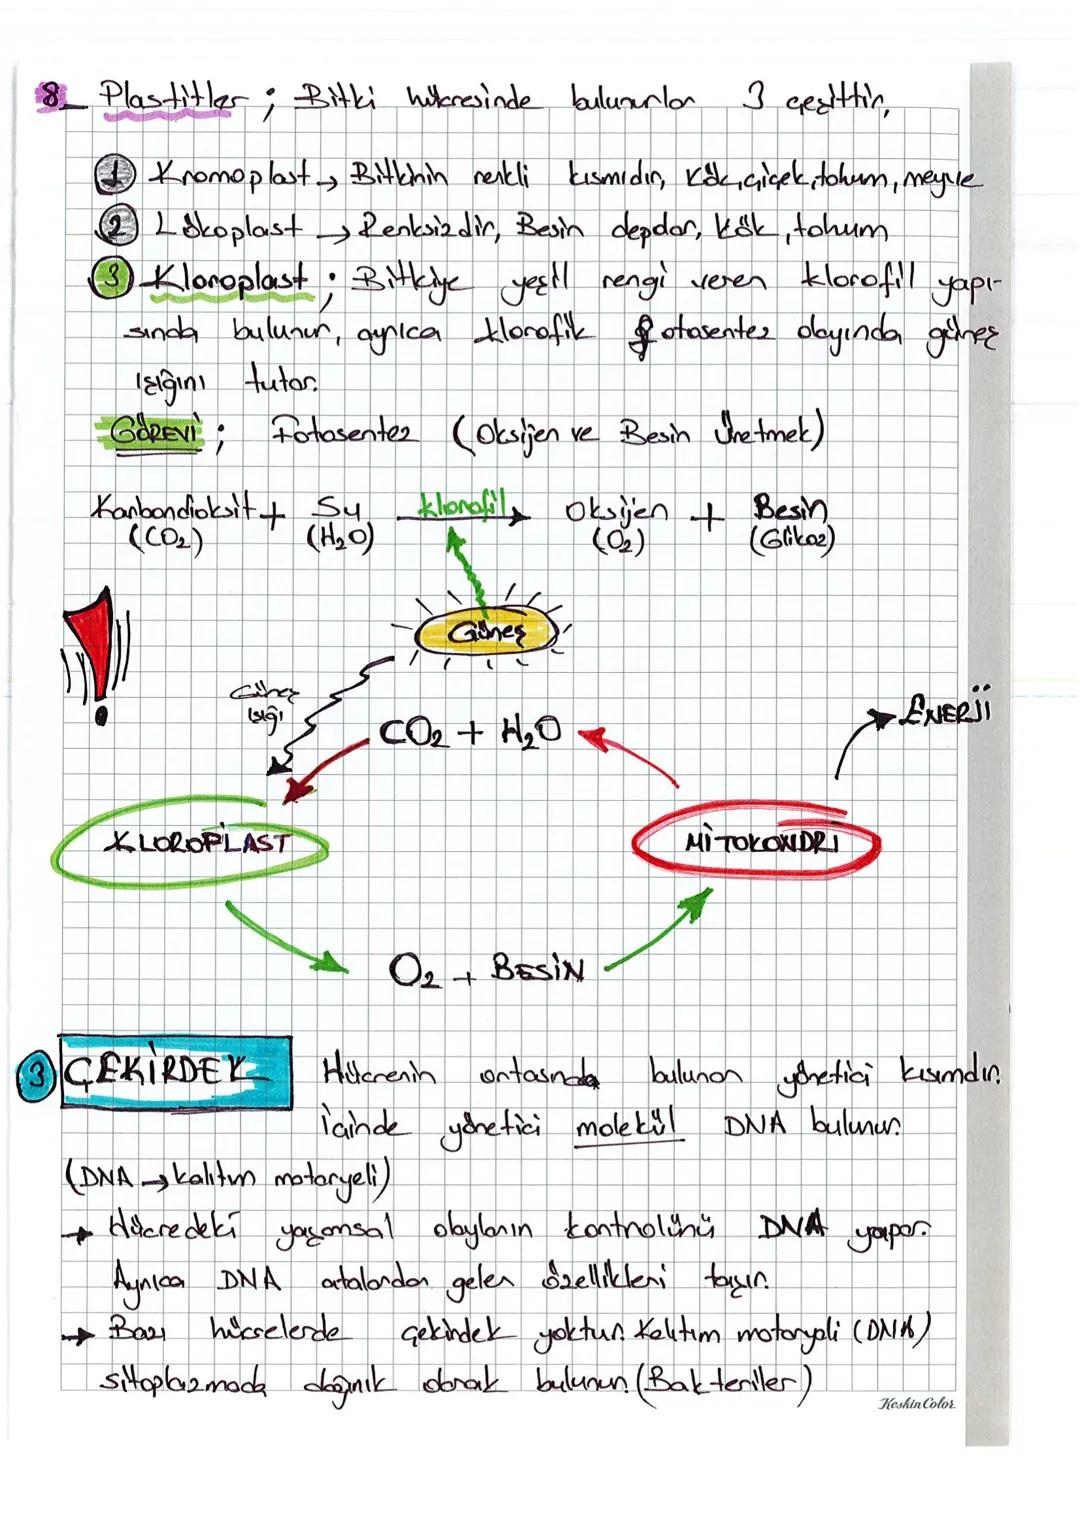 8_ Plastitler ; Bitki hücresinde bulunurlar 3 çeşittir,
1 Kromoplast → Bitkinin renkli kısmıdır, Kök, çiçek, tohum, meyve
2 Lökoplast → Renksizdir, Besin depolar, kök, tohum
3 Kloroplast ; Bitkiye yeşil rengi veren klorofil yapı-
sında bulunur, ayrıca klorofik fotosentez olayında güneş
ışığını tutar.
GÖREVİ ; Fotosentez (Oksijen ve Besin Üretmek)
Karbondioksit + Su klorofil → Oksijen + Besin
(CO₂) (H₂O) (O₂) (Glikoz)
Güneş
Güneş
ışığı
ENERJİ
CO₂ + H₂O
KLOROPLAST
MİTOKONDRİ
O₂ + BESİN
3 ÇEKİRDEK Hücrenin ortasında bulunan yönetici kısımdır.
İçinde yönetici molekül DNA bulunur.
(DNA → kalıtım materyeli)
→ Hücredeki yaşamsal olayların kontrolünü DNA yapar.
Ayrıca DNA atalardan gelen özellikleri taşır.
→ Bazı hücrelerde çekirdek yoktur. Kalıtım materyali (DNA)
sitoplazmada dağınık olarak bulunur. (Bakteriler)
KeskinColor